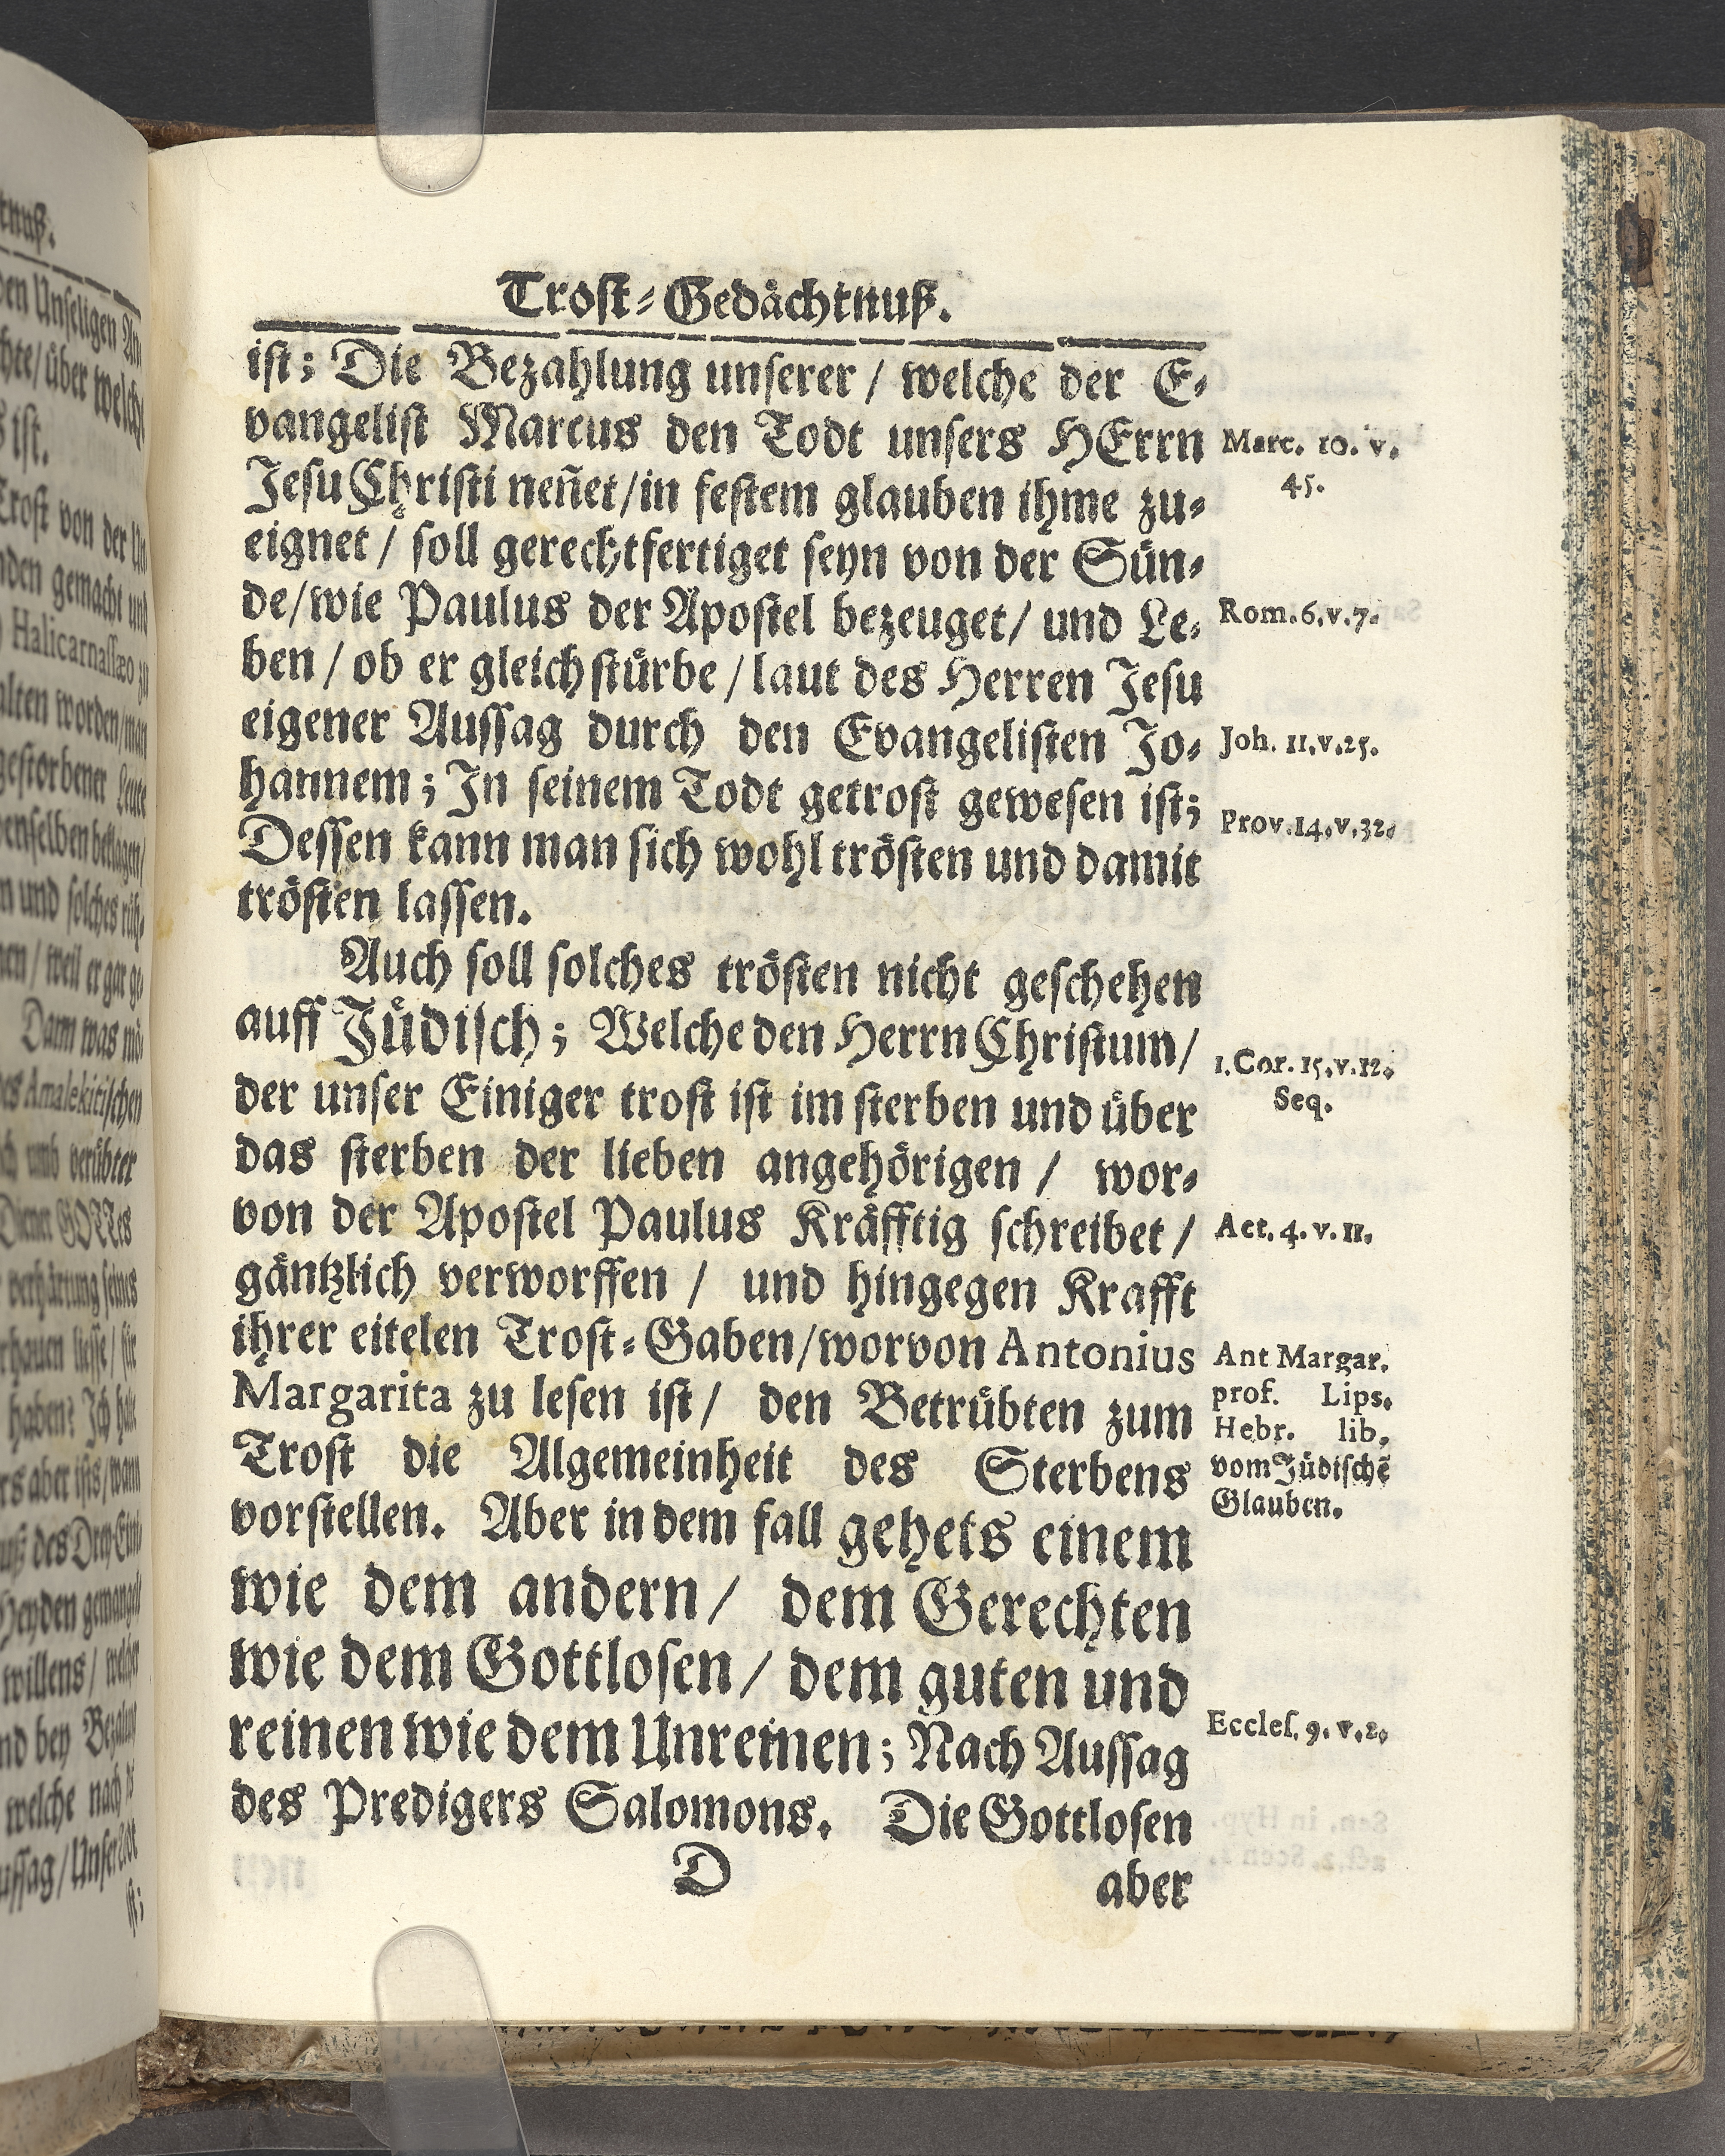 Trost-Gedächtnuß.
ist; Die Bezahlung unserer / welche der E-
vangelist Marcus den Todt unsers HErrn
Jesu Christi neñet/in festem glauben ihme zu-
eignet / soll gerechtfertiget seyn von der Sün-
de/wie Paulus der Apostel bezeuget/ und Le-
ben / ob er gleich stürbe / laut des Herren Jesu
eigener Aussag durch den Evangelisten Jo-
hannem; In seinem Todt getrost gewesen ist;
Dessen kann man sich wohl trösten und damit
trösten lassen.
Auch soll solches trösten nicht geschehen
auff Jüdisch; Welche den Herrn Christum/
der unser Einiger trost ist im sterben und über
das sterben der lieben angehörigen / wor-
von der Apostel Paulus Kräfftig schreibet /
gäntzlich verworffen / und hingegen Krafft
ihrer eitelen Trost-Gaben/worvon Antonius
Margarita zu lesen ist / den Betrübten zum
Trost die Algemeinheit des Sterbens
vorstellen. Aber in dem fall gehets einem
wie dem andern / dem Gerechten
wie dem Gottlosen / dem guten und
reinen wie dem Unreinen; Nach Aussag
des Predigers Salomons. Die Gottlosen
D
aber
Marc. 10. v.
45.
Rom. 6. v. 7.
Joh. 11. v. 25.
Prov. 14. v. 32.
1. Cor. 15. v. 12.
Seq.
Act. 4. v. 11.
Ant Margar.
prof. Lips.
Hebr. lib.
vom Jüdischẽ
Glauben.
Eccles. 9. v. 2.